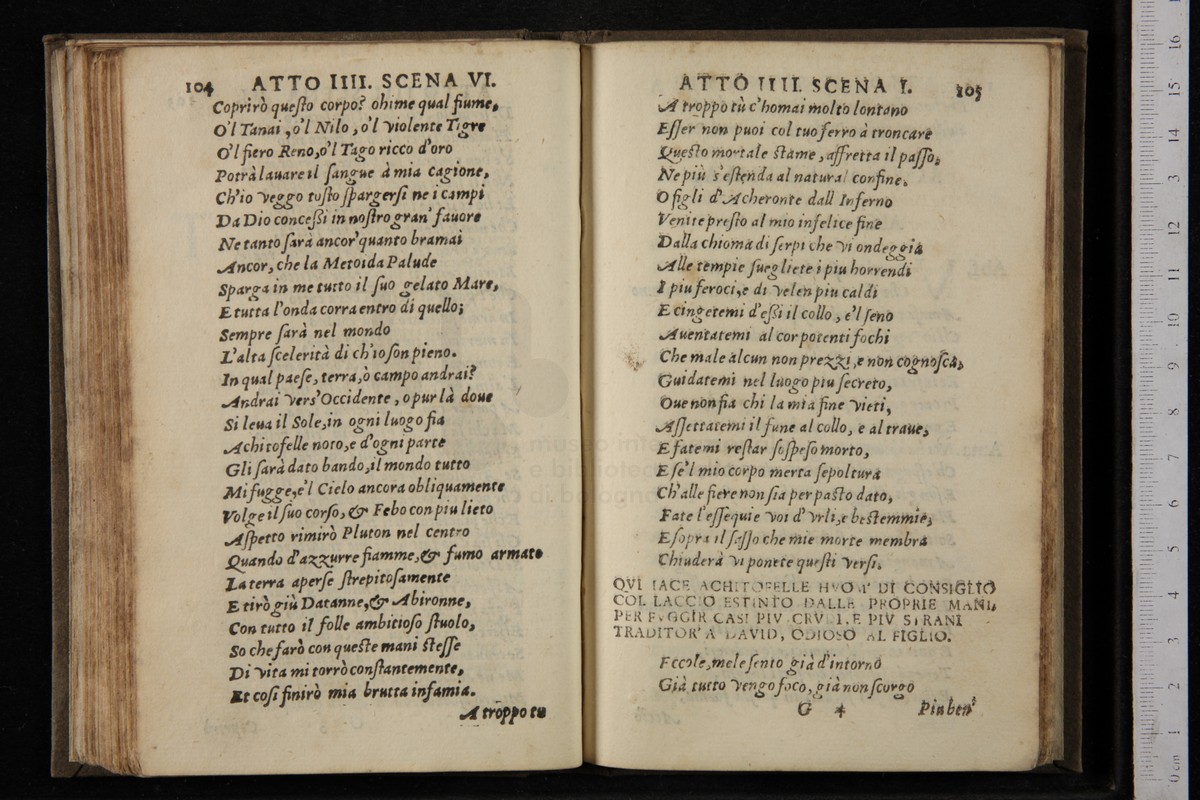 104 ATTO IIII. SCENA VI.
Coprirò questo corpo? ohime qual fiume,
O'l Tanai, ò'l Nilo, ò'l violente Tigre
O'l fiero Reno, o'l Tago ricco d'oro
Potrà lauare il sangue à mia cagione,
Ch'io veggo tosto spargersi ne i campi
Da Dio concessi in nostro gran fauore
Ne tanto sarà ancor' quanto bramai
Ancor, che la Metoida Palude
Sparga in me tutto il suo gelato Mare,
E tutta l'onda corra entro di quello;
Sempre sarà nel mondo
L'alta scelerità di ch'io son pieno.
In qual paese, terra, ò campo andrai?
Andrai vers' Occidente, o pur là doue
Si leua il Sole, in ogni luogo fia
Achitofelle noto, e d'ogni parte
Gli sarà dato bando, il mondo tutto
Mi fugge, e'l Cielo ancora obliquamente
Volge il suo corso, & Febo con piu lieto
Aspetto rimirò Pluton nel centro
Quando d'azzurre fiamme, & fumo armato
La terra aperse strepitosamente
E tirò giù Datanne, & Abironne,
Con tutto il folle ambitioso stuolo,
So che farò con queste mani stesse
Di vita mi torrò constantemente,
Et cosi finirò mia brutta infamia.
A troppo tu
ATTO IIII. SCENA I. 105
A troppo tù c'homai molto lontano
Esser non puoi col tuo ferro à troncare
Questo mortale stame, affretta il passo,
Ne più s'estenda al natural confine.
O figli d'Acheronte dall Inferno
Venite presto al mio infelice fine
Dalla chioma di serpi che vi ondeggia
Alle tempie suegliete i piu horrendi
I piu feroci, e di velen piu caldi
E cingetemi d'essi il collo, e'l seno
Auentatemi al cor potenti fochi
Che male alcun non prezzi, e non cognosca,
Guidatemi nel luogo piu secreto,
Oue non fia chi la mia fine vieti,
Assettatemi il fune al collo, e al traue,
E fatemi restar sospeso morto,
E se'l mio corpo merta sepoltura
Ch'alle fiere non sia per pasto dato,
Fate l'essequie voi d'vrli, e bestemmie,
E sopra il sasso che mie morte membra
Chiuderà vi ponete questi versi.
QVI IACE ACHITOFELLE HVOM' DI CONSIGLIO
COL LACCIO ESTINTO DALLE PROPRIE MANI,
PER FVGGIR CASI PIV CRVDI, E PIV STRANI
TRADITOR' A DAVID, ODIOSO AL FIGLIO.
Eccole, me le sento già d'intorno
Già tutto vengo foco, già non scorgo
G 4 Piu ben'